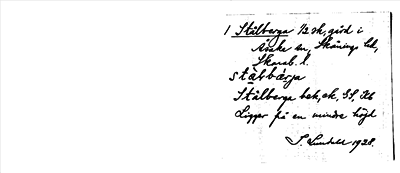 1 Stålberga 1/2 sk, gård i
Åsaka sn, Skånings hd,
Skarab. l.
stålbärja
Stålberga bek, ek, GS, Kb
Ligger på en mindre höjd
S. Lundahl 1928.